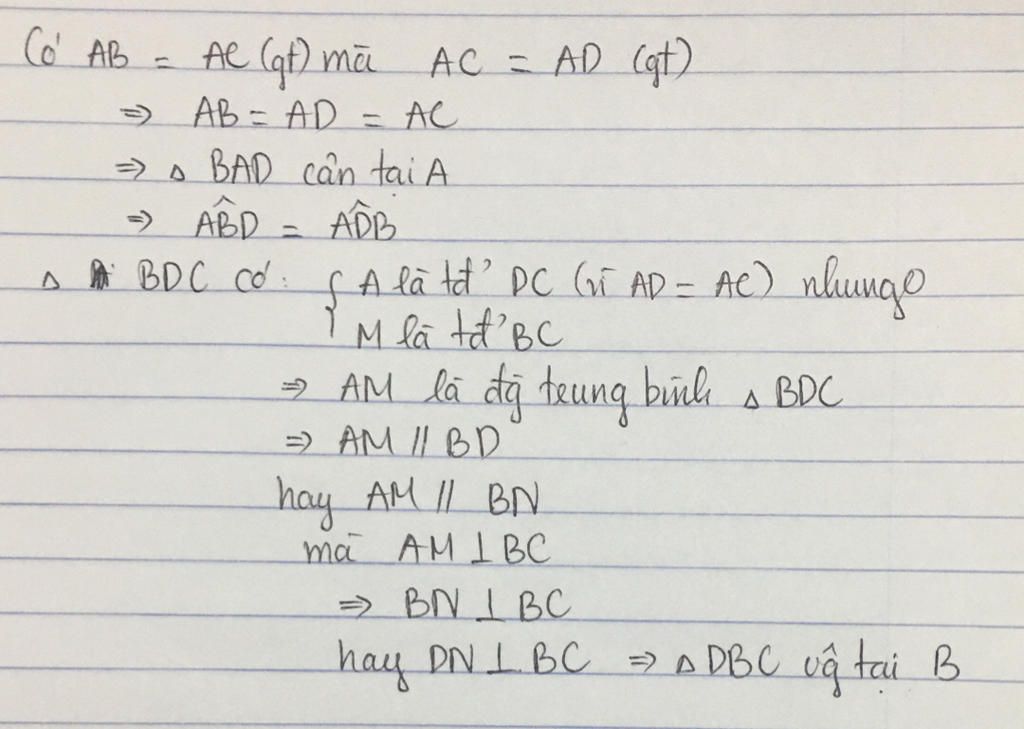 Có AB = AC (gt) mà AC = AD (gt)
⇒ AB = AD = AC
⇒ △ BAD cân tại A
⇒ AB̂D = AD̂B
△ BDC có: { A là tđ' DC (vì AD = AC) nhungo
M là tđ' BC
⇒ AM là đg̀ trung bình △ BDC
⇒ AM // BD
hay AM // BN
mà AM ⊥ BC
⇒ BN ⊥ BC
hay DN ⊥ BC ⇒ △ DBC vĝ tại B